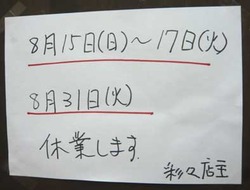 8月15日(日)〜17日(火)
8月31日(火)
休業します
彩々店主